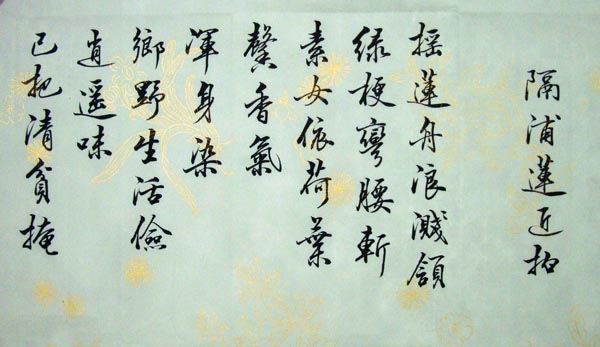 隔浦蓮近拍
摇蓮舟浪濺領
绿梗彎腰斬
素女依荷葉
馨香氣
渾身染
鄉野生活儉
逍遥味
已把清貧掩